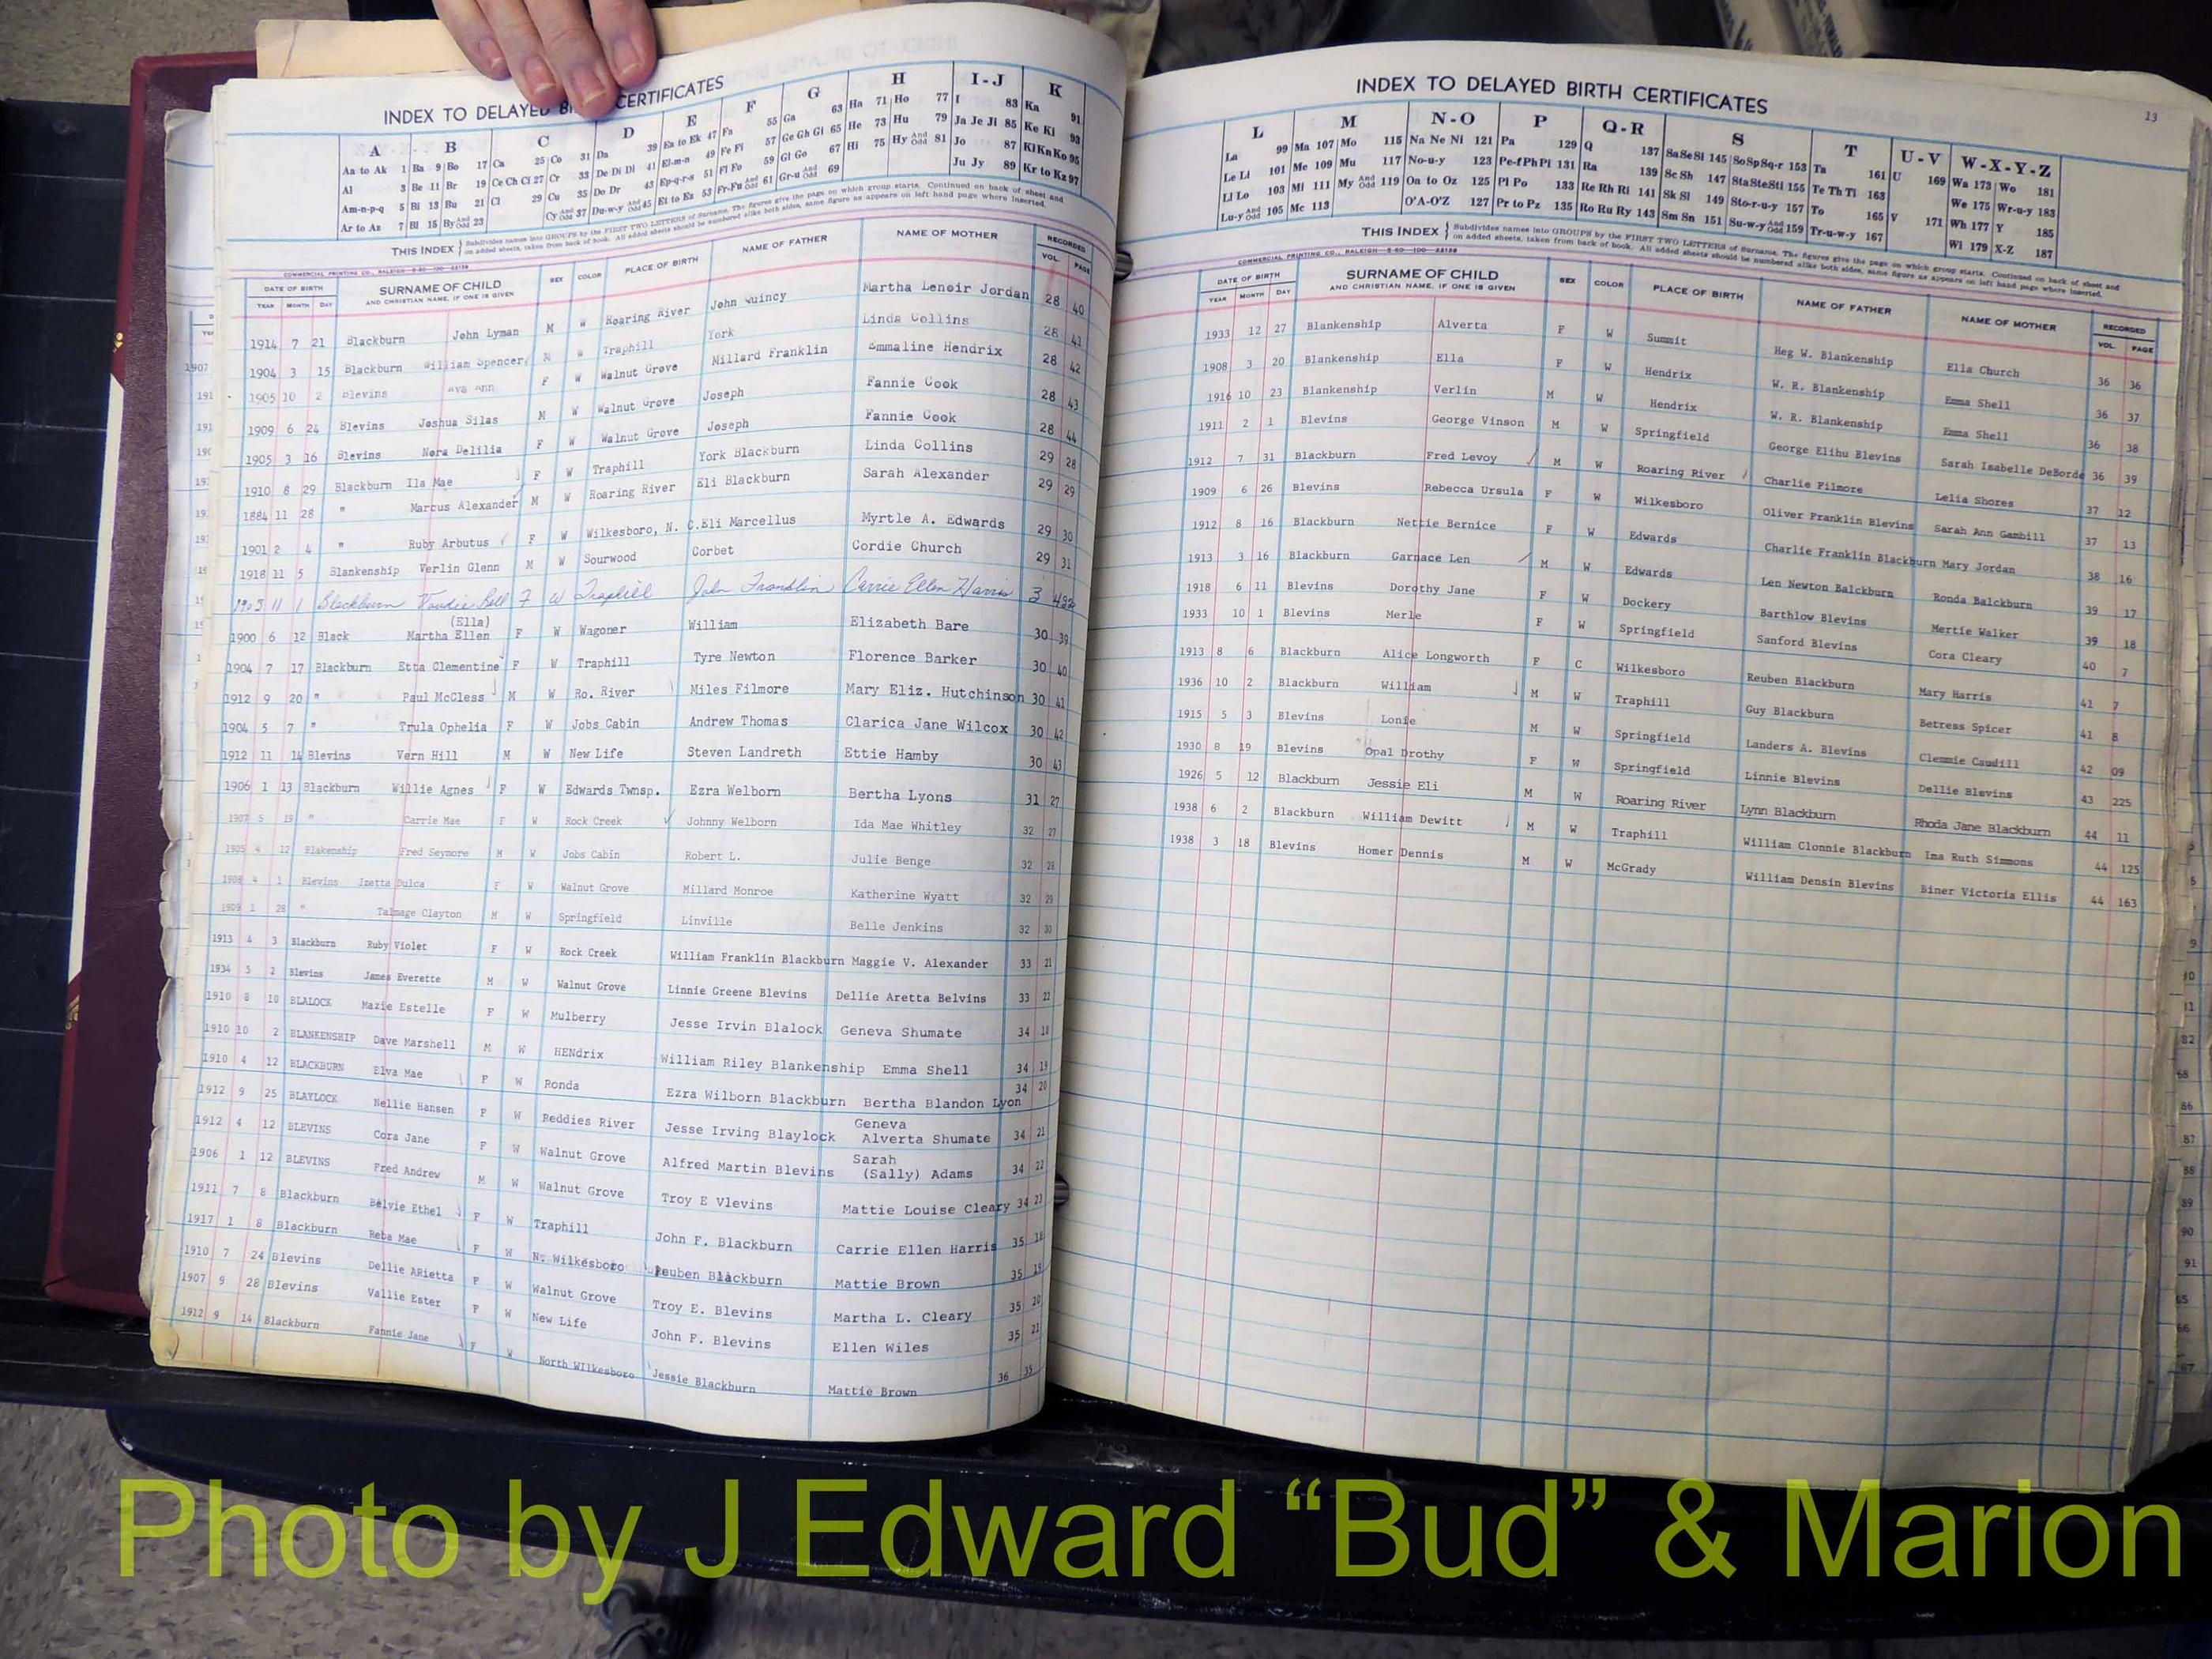 INDEX TO DELAYED BI CERTIFICATES
A B C D E F G H I-J K
Aa to Ak 1 Ba 9 Bo 17 Ca 25 Co 31 Da 39 Ea to Ek 47 Fa 55 Ga 63 Ha 71 Ho 77 I 83 Ka 91
Al 3 Be 11 Br 19 Ce Ch Ci 27 Cr 33 De Di Dl 41 El-m-n 49 Fe Fi 57 Ge Gh Gi 65 He 73 Hu 79 Ja Je Ji 85 Ke Ki 93
Am-n-p-q 5 Bi 13 Bu 21 Cl 29 Cu 35 Do Dr 43 Ep-q-r-s 51 Fl Fo 59 Gl Go 67 Hi 75 Hy And Odd 81 Jo 87 Kl Kn Ko 95
Ar to Az 7 Bl 15 By And Odd 23 Cy And Odd 37 Du-w-y And Odd 45 Et to Ez 53 Fr-Fu And Odd 61 Gr-u And Odd 69 Ju Jy 89 Kr to Kz 97
THIS INDEX Subdivides names into GROUPS by the FIRST TWO LETTERS of Surname. The figures give the page on which group starts. Continued on back of sheet and
on added sheets, taken from back of book. All added sheets should be numbered alike both sides, same figure as appears on left hand page where inserted.
COMMERCIAL PRINTING CO., RALEIGH
DATE OF BIRTH SURNAME OF CHILD SEX COLOR PLACE OF BIRTH NAME OF FATHER NAME OF MOTHER RECORDED
YEAR MONTH DAY AND CHRISTIAN NAME, IF ONE IS GIVEN VOL. PAGE
1914 7 21 Blackburn John Lyman M W Roaring River John Quincy Martha Lenoir Jordan 28 40
1904 3 15 Blackburn William Spencer M W Traphill York Linda Collins 28 41
1905 10 2 Blevins Ava Ann F W Walnut Grove Millard Franklin Emmaline Hendrix 28 42
1909 6 24 Blevins Joshua Silas M W Walnut Grove Joseph Fannie Cook 28 43
1905 3 16 Blevins Nora Delilia F W Walnut Grove Joseph Fannie Cook 28 44
1910 8 29 Blackburn Ila Mae F W Traphill York Blackburn Linda Collins 29 28
1884 11 28 " Marcus Alexander M W Roaring River Eli Blackburn Sarah Alexander 29 29
1901 2 4 " Ruby Arbutus F W Wilkesboro, N. C. Eli Marcellus Myrtle A. Edwards 29 30
1918 11 5 Blankenship Verlin Glenn M W Sourwood Corbet Cordie Church 29 31
1903 11 1 Blackburn Bell F W Traphill John Franklin Carrie Ellen Harris 3
(Ella)
1900 6 12 Black Martha Ellen F W Wagoner William Elizabeth Bare 30 39
1904 7 17 Blackburn Etta Clementine F W Traphill Tyre Newton Florence Barker 30 40
1912 9 20 " Paul McCless M W Ro. River Miles Filmore Mary Eliz. Hutchinson 30 41
1904 5 7 " Trula Ophelia F W Jobs Cabin Andrew Thomas Clarica Jane Wilcox 30 42
1912 11 14 Blevins Vern Hill M W New Life Steven Landreth Ettie Hamby 30 43
1906 1 13 Blackburn Willie Agnes F W Edwards Twnsp. Ezra Welborn Bertha Lyons 31 27
1907 5 19 " Carrie Mae F W Rock Creek Johnny Welborn Ida Mae Whitley 32 27
1905 4 12 Blakenship Fred Seymore M W Jobs Cabin Robert L. Julie Benge 32 28
1908 4 1 Blevins Inetta Dulca F W Walnut Grove Millard Monroe Katherine Wyatt 32 29
1909 1 28 " Talmage Clayton M W Springfield Linville Belle Jenkins 32 30
1913 4 3 Blackburn Ruby Violet F W Rock Creek William Franklin Blackburn Maggie V. Alexander 33 21
1934 5 2 Blevins James Everette M W Walnut Grove Linnie Greene Blevins Dellie Aretta Belvins 33 22
1910 8 10 BLALOCK Mazie Estelle F W Mulberry Jesse Irvin Blalock Geneva Shumate 34 18
1910 10 2 BLANKENSHIP Dave Marshell M W HENdrix William Riley Blankenship Emma Shell 34 19
1910 4 12 BLACKBURN Elva Mae F W Ronda Ezra Wilborn Blackburn Bertha Blandon Lyon 34 20
1912 9 25 BLAYLOCK Nellie Hansen F W Reddies River Jesse Irving Blaylock Geneva Alverta Shumate 34 21
1912 4 12 BLEVINS Cora Jane F W Walnut Grove Alfred Martin Blevins Sarah (Sally) Adams 34 22
1906 1 12 BLEVINS Fred Andrew M W Walnut Grove Troy E Vlevins Mattie Louise Cleary 34 23
1911 7 8 Blackburn Belvie Ethel F W Traphill John F. Blackburn Carrie Ellen Harris 35 18
1917 1 8 Blackburn Reba Mae F W N. Wilkesboro Reuben Blackburn Mattie Brown 35 19
1910 7 24 Blevins Dellie ARietta F W Walnut Grove Troy E. Blevins Martha L. Cleary 35 20
1907 9 28 Blevins Vallie Ester F W New Life John F. Blevins Ellen Wiles 35 21
1912 9 14 Blackburn Fannie Jane F W North WIlkesboro Jessie Blackburn Mattie Brown 36 35
INDEX TO DELAYED BIRTH CERTIFICATES
13
L M N-O P Q-R S T U-V W-X-Y-Z
La 99 Ma 107 Mo 115 Na Ne Ni 121 Pa 129 Q 137 Sa Se Si 145 So Sp Sq-r 153 Ta 161 U 169 Wa 173 Wo 181
Le Li 101 Me 109 Mu 117 No-u-y 123 Pe-f Ph Pi 131 Ra 139 Sc Sh 147 Sta Ste Sti 155 Te Th Ti 163 We 175 Wr-u-y 183
Ll Lo 103 Mi 111 My And Odd 119 Oa to Oz 125 Pl Po 133 Re Rh Ri 141 Sk Sl 149 Sto-r-u-y 157 To 165 V 171 Wh 177 Y 185
Lu-y And Odd 105 Mc 113 O'A-O'Z 127 Pr to Pz 135 Ro Ru Ry 143 Sm Sn 151 Su-w-y And Odd 159 Tr-u-w-y 167 Wi 179 X-Z 187
THIS INDEX Subdivides names into GROUPS by the FIRST TWO LETTERS of Surname. The figures give the page on which group starts. Continued on back of sheet and
on added sheets, taken from back of book. All added sheets should be numbered alike both sides, same figure as appears on left hand page where inserted.
COMMERCIAL PRINTING CO., RALEIGH
DATE OF BIRTH SURNAME OF CHILD SEX COLOR PLACE OF BIRTH NAME OF FATHER NAME OF MOTHER RECORDED
YEAR MONTH DAY AND CHRISTIAN NAME, IF ONE IS GIVEN VOL. PAGE
1933 12 27 Blankenship Alverta F W Summit Heg W. Blankenship Ella Church 36 36
1908 3 20 Blankenship Ella F W Hendrix W. R. Blankenship Emma Shell 36 37
1916 10 23 Blankenship Verlin M W Hendrix W. R. Blankenship Emma Shell 36 38
1911 2 1 Blevins George Vinson M W Springfield George Elihu Blevins Sarah Isabelle DeBorde 36 39
1912 7 31 Blackburn Fred Levoy M W Roaring River Charlie Filmore Lelia Shores 37 12
1909 6 26 Blevins Rebecca Ursula F W Wilkesboro Oliver Franklin Blevins Sarah Ann Gambill 37 13
1912 8 16 Blackburn Nettie Bernice F W Edwards Charlie Franklin Blackburn Mary Jordan 38 16
1913 3 16 Blackburn Garnace Len M W Edwards Len Newton Balckburn Ronda Balckburn 39 17
1918 6 11 Blevins Dorothy Jane F W Dockery Barthlow Blevins Mertie Walker 39 18
1933 10 1 Blevins Merle F W Springfield Sanford Blevins Cora Cleary 40 7
1913 8 6 Blackburn Alice Longworth F C Wilkesboro Reuben Blackburn Mary Harris 41 7
1936 10 2 Blackburn William M W Traphill Guy Blackburn Betress Spicer 41 8
1915 5 3 Blevins Lonie M W Springfield Landers A. Blevins Clemmie Caudill 42 09
1930 8 19 Blevins Opal Drothy F W Springfield Linnie Blevins Dellie Blevins 43 225
1926 5 12 Blackburn Jessie Eli M W Roaring River Lynn Blackburn Rhoda Jane Blackburn 44 11
1938 6 2 Blackburn William Dewitt M W Traphill William Clonnie Blackburn Ima Ruth Simmons 44 125
1938 3 18 Blevins Homer Dennis M W McGrady William Densin Blevins Biner Victoria Ellis 44 163
Photo by J Edward “Bud” & Marion